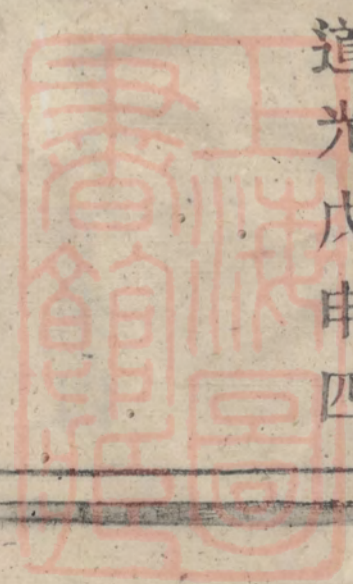 道光戊申四
上海圖
書館藏